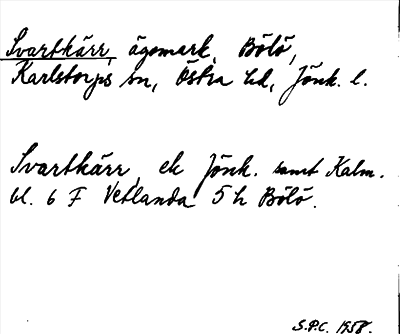 Svartkärr, ägomark, Bölö,
Karlstorps sn, Östra hd, Jönk. l.
Svartkärr, ek Jönk. samt Kalm.
bl. 6 F Vetlanda 5 h Bölö.
S.P.C. 1958.